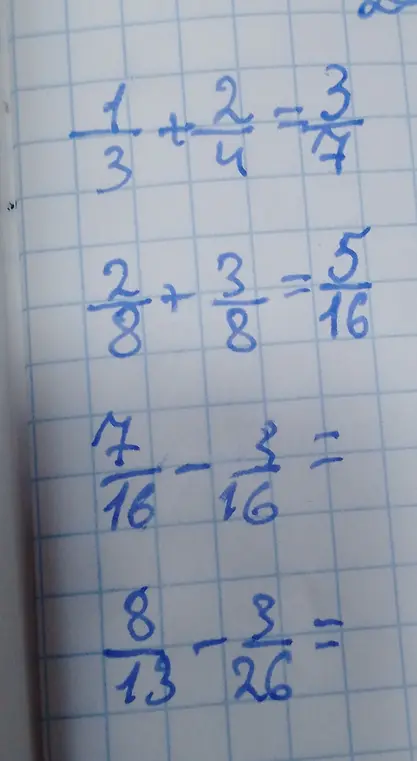 1/3 + 2/4 = 3/7
2/8 + 3/8 = 5/16
7/16 - 3/16 =
8/13 - 3/26 =